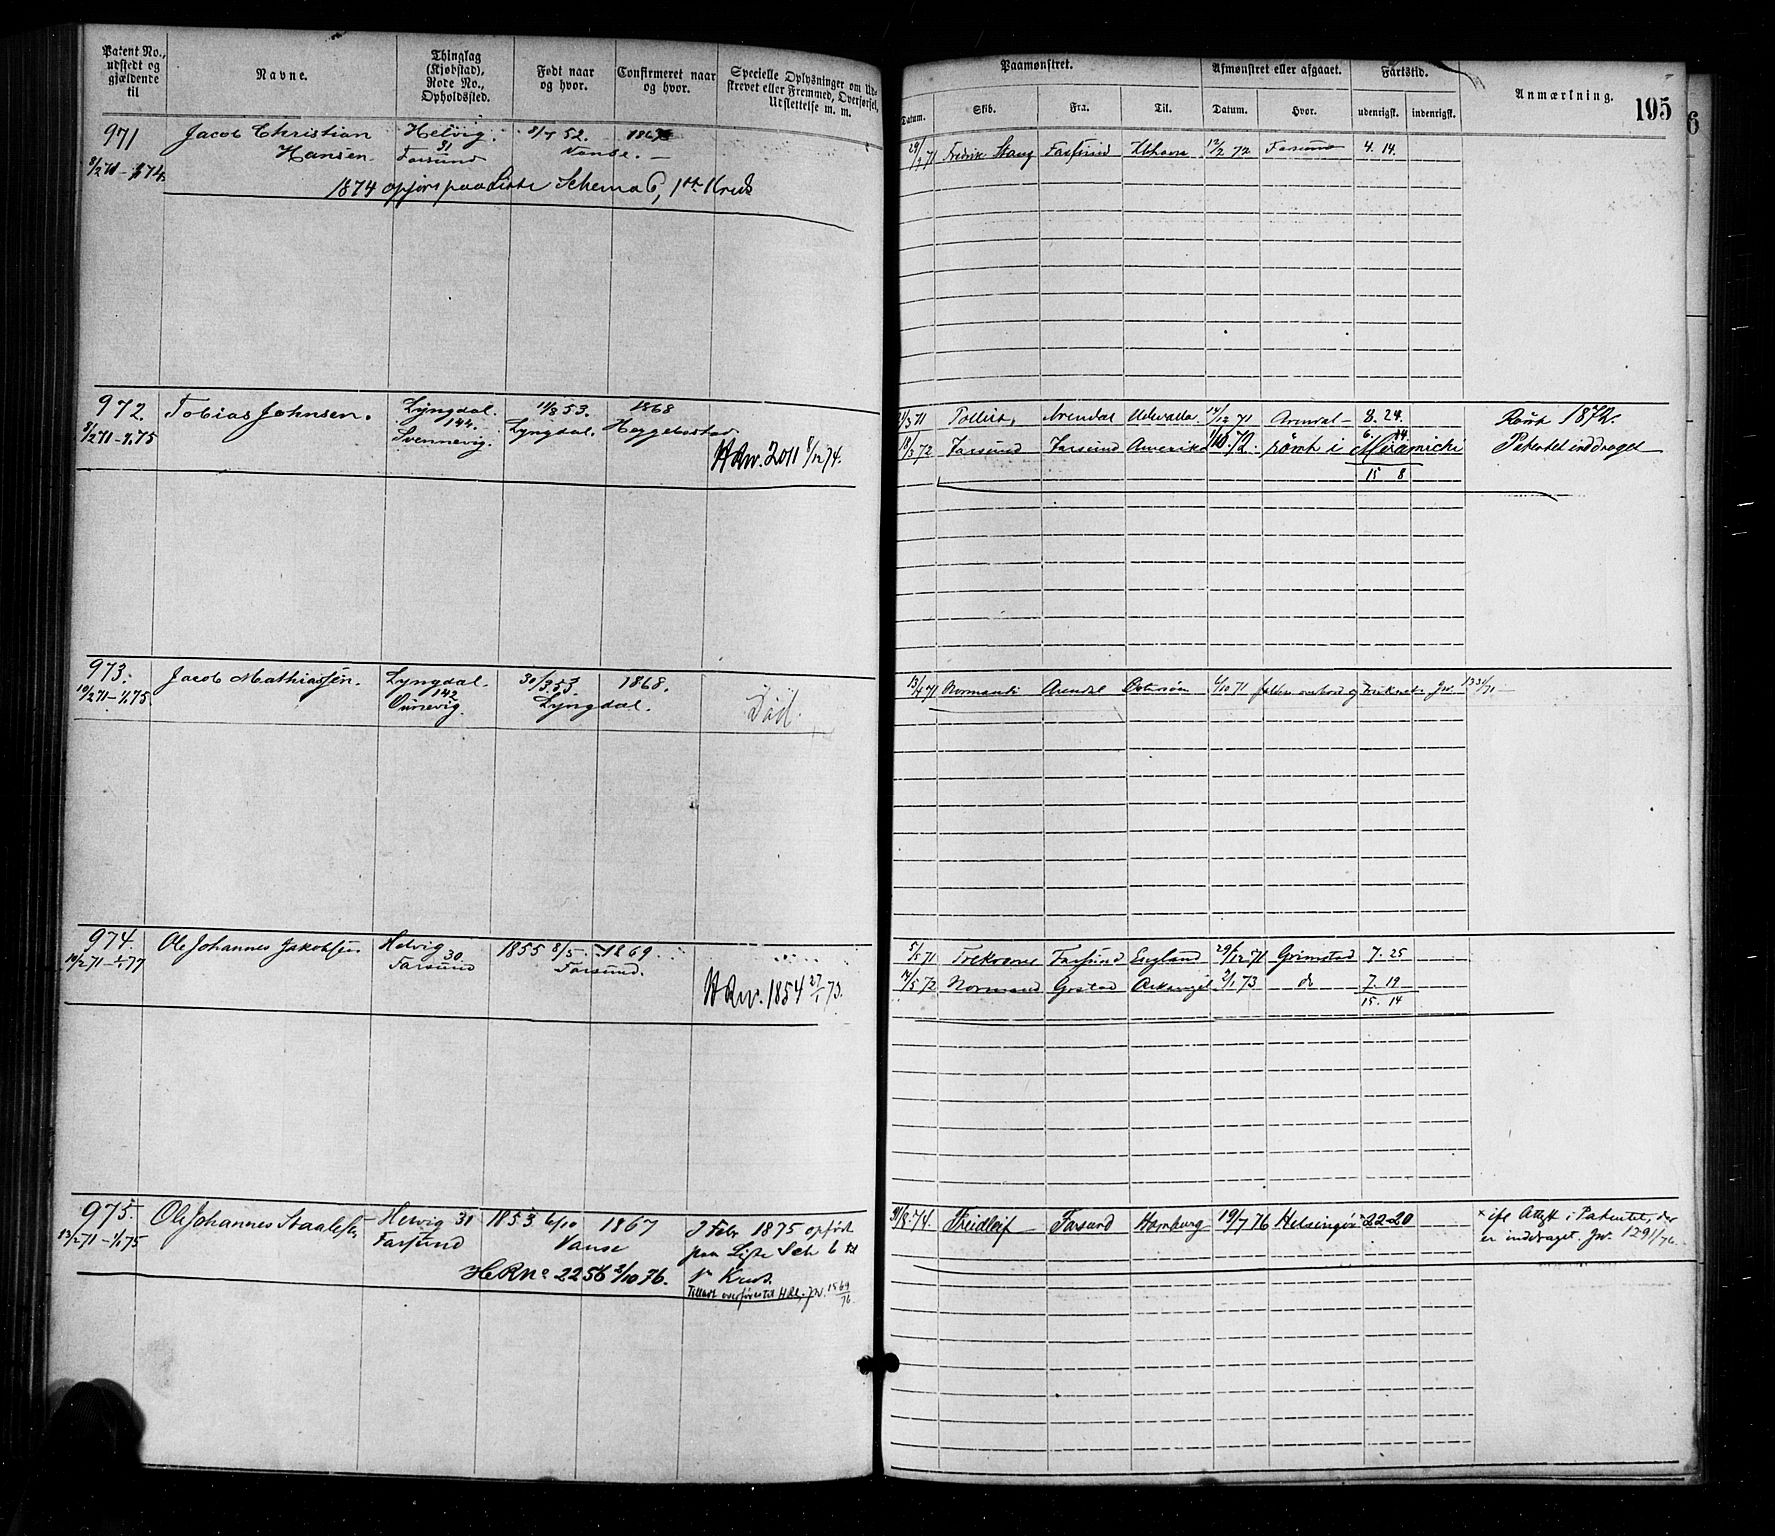 Patent No., udstedt og gjældende til
Navne.
Thinglag (Kjøbstad), Rode No., Opholdssted.
Født naar og hvor.
Confirmeret naar og hvor.
Specielle Oplysninger om Udskrevet eller Fremmed, Overførsel, Udslettelse m. m.
Paamønstret.
Afmønstret eller afgaaet.
Fartstid.
Anmærkning.
195
Datum.
Skib.
Fra.
Til.
Datum.
Hvor.
udenrigsk.
indenrigsk.
971
Jacob Christian Hansen
Helvig 31 Farsund
52. Vanse.
1874 opført paa Liste Schema 6, 1ste Kreds
Fredrik Stang Farsund
12/2 72 Farsund 4. 14.
972.
8/2 71 – 1/1 75
Tobias Johnsen.
Lyngdal. 144. Svennevig.
11/8 53. Lyngdal.
1868 Heggebostad
HRw. 2011 8/12 74.
Arendal Udevalla 14/12 71 Arendal 8. 24.
Rømt 1872.
10/3 72 Farsund Farsund Amerika 1/10 72. rømt i Miramichi 6. 14
Patentet inddraget
15 8
973.
10/2 71 – 1/1 75
Jacob Mathiassen.
Lyngdal. 142
30/3 53. Lyngdal.
1868.
Død.
13/4 71 Normandi Arendal
6/10 71 falden overbord og druknet. Jw.
974.
10/2 71 – 1/1 77
Ole Johannes Jakobsen
Helvig 30 Farsund
1855 8/5
1869 Farsund.
HRw. 1854 27/1 73.
5/5 71 Farsund England 29/12 71 Grimstad 7. 25
14/5 72 Normand Arkangel 2/1 73 do 7. 19
15. 14
975.
13/2 71 – 1/1 75
Ole Johannes Staalesen
Helvig 31 Farsund
1853 6/10
1867 Vanse
J Febr 1875 opført paa Liste Sch 6 1st Kreds.
HRNo 2256 2/10 76.
Tilladt overføres til HRl, Jw. 1569/76
31/8 74. Freidleif Farsund Hamburg 19/7 76 Helsingør × 22-20
× ifl Attest i Patentet, der er inddraget. Jw. 1291/76.